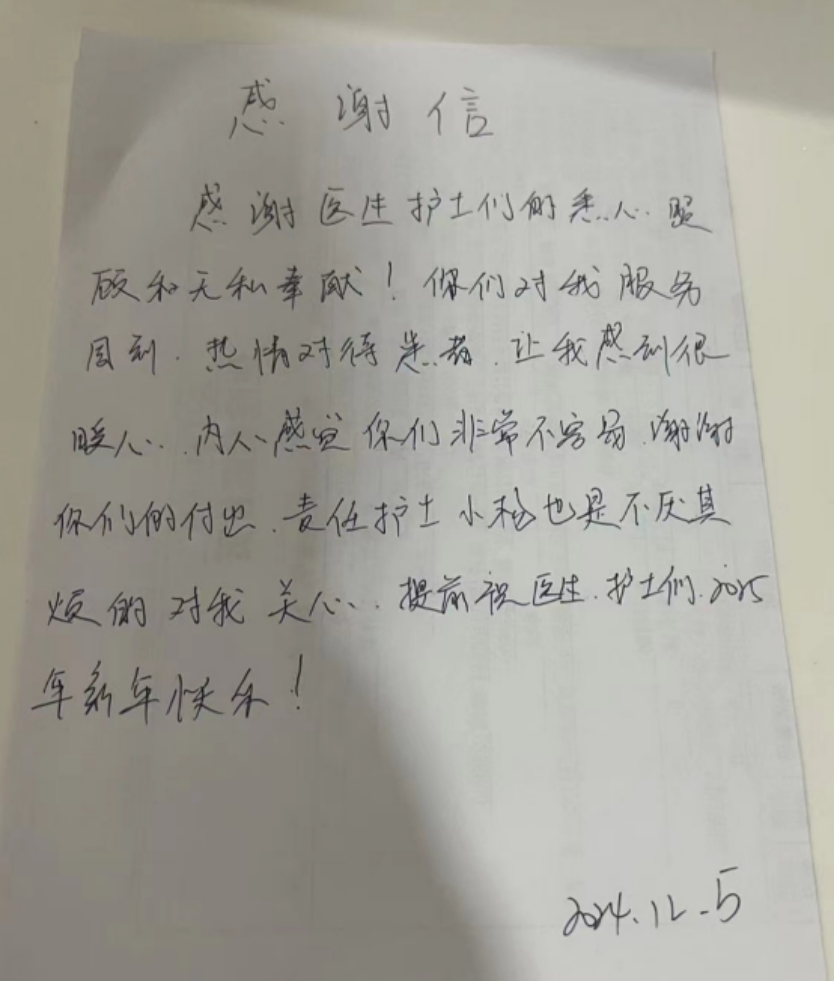 感谢信
感谢医生护士们的悉心照
顾和无私奉献！你们对我服务
周到.热情对待患者.让我感到很
暖心.内人感觉你们非常不容易.谢谢
你们的付出.责任护士小杨也是不厌其
烦的对我关心.提前祝医生.护士们.2025
年新年快乐！
2024.12.5